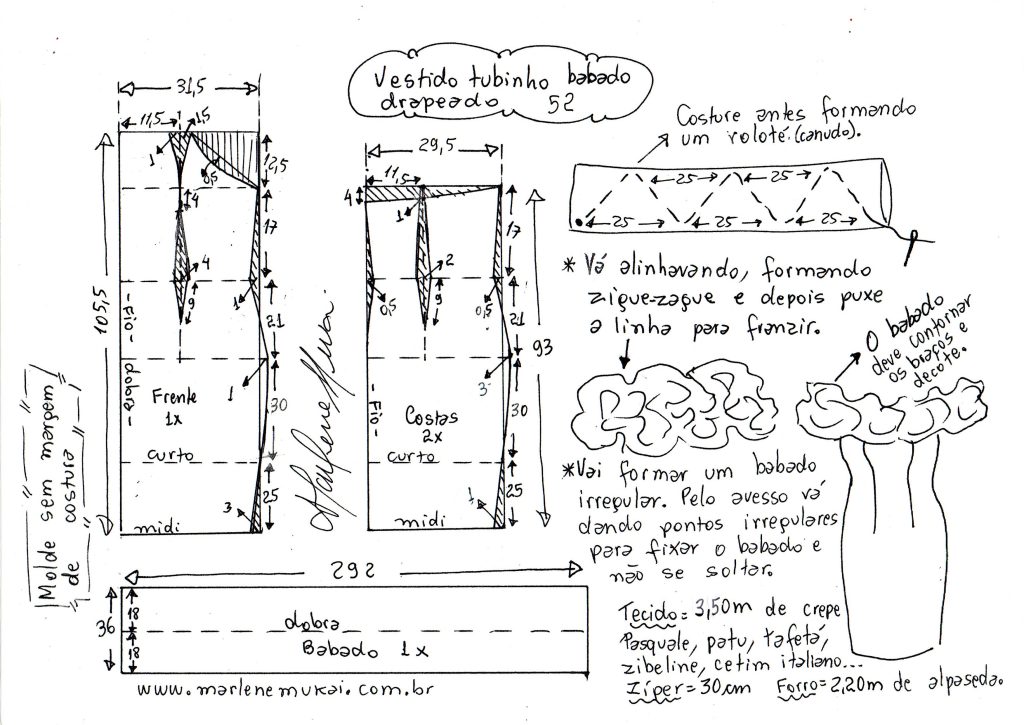 Vestido tubinho babado
drapeado 52
31,5
11,5
1,5
1
0,5
12,5
4
17
4
1
9
105,5
21
- Fio - dobra -
1
30
Frente
1x
curto
3
25
midi
Molde sem margem
de costura
Marlene Mukai
29,5
11,5
4
1
17
2
0,5
9
0,5
21
93
3
- Fio -
Costas
2x
30
curto
1
25
midi
292
36
18
18
dobra
Babado 1x
www.marlenemukai.com.br
Costure antes formando
um roloté.(canudo).
25 25
25 25 25
* Vá alinhavando, formando
zigue-zague e depois puxe
a linha para franzir.
O babado
deve contornar
os braços e
decote.
*Vai formar um babado
irregular. Pelo avesso vá
dando pontos irregulares
para fixar o babado e
não se soltar.
Tecido= 3,50m de crepe
Pasquale, patu, tafetá,
zibeline, cetim italiano...
Zíper=30cm Forro=2,20m de alpaseda.